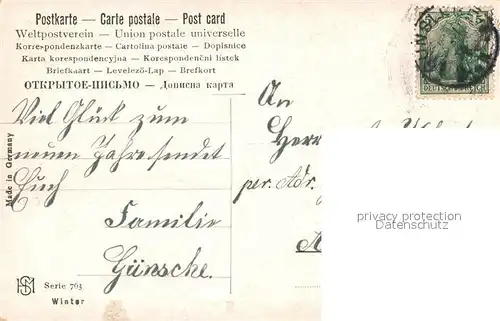 Postkarte — Carte postale — Post card
Weltpostverein — Union postale universelle
Korrespondenzkarte — Cartolina postale — Dopisnice
Karta korespondencyjna — Korespondenční lístek
Briefkaart — Levelező-Lap — Brefkort
ОТКРЫТОЕ-ПИСЬМО — Дописна карта
Viel Glück zum
neuen Jahre sendet
Euch
Familie
Günsche.
An
Herr
per. Adr.
Made in Germany
Serie 763
Winter
DEUTSCHES REICH
privacy protection
Datenschutz